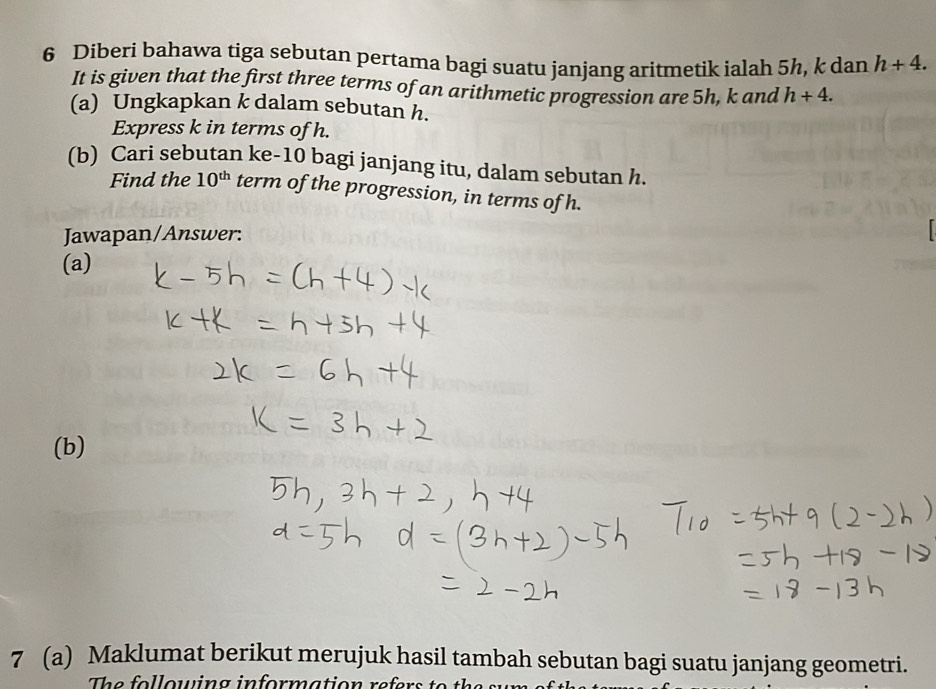 6 Diberi bahawa tiga sebutan pertama bagi suatu janjang aritmetik ialah 5h, k dan h + 4.
It is given that the first three terms of an arithmetic progression are 5h, k and h + 4.
(a) Ungkapkan k dalam sebutan h.
Express k in terms of h.
(b) Cari sebutan ke-10 bagi janjang itu, dalam sebutan h.
Find the 10th term of the progression, in terms of h.
Jawapan/Answer:
(a)
k - 5h = (h + 4) - k
k + k = h + 5h + 4
2k = 6h + 4
k = 3h + 2
(b)
5h, 3h + 2, h + 4
a = 5h d = (3h + 2) - 5h
= 2 - 2h
T10 = 5h + 9(2 - 2h)
= 5h + 18 - 18
= 18 - 13h
7 (a) Maklumat berikut merujuk hasil tambah sebutan bagi suatu janjang geometri.
The following information refers to the sum of